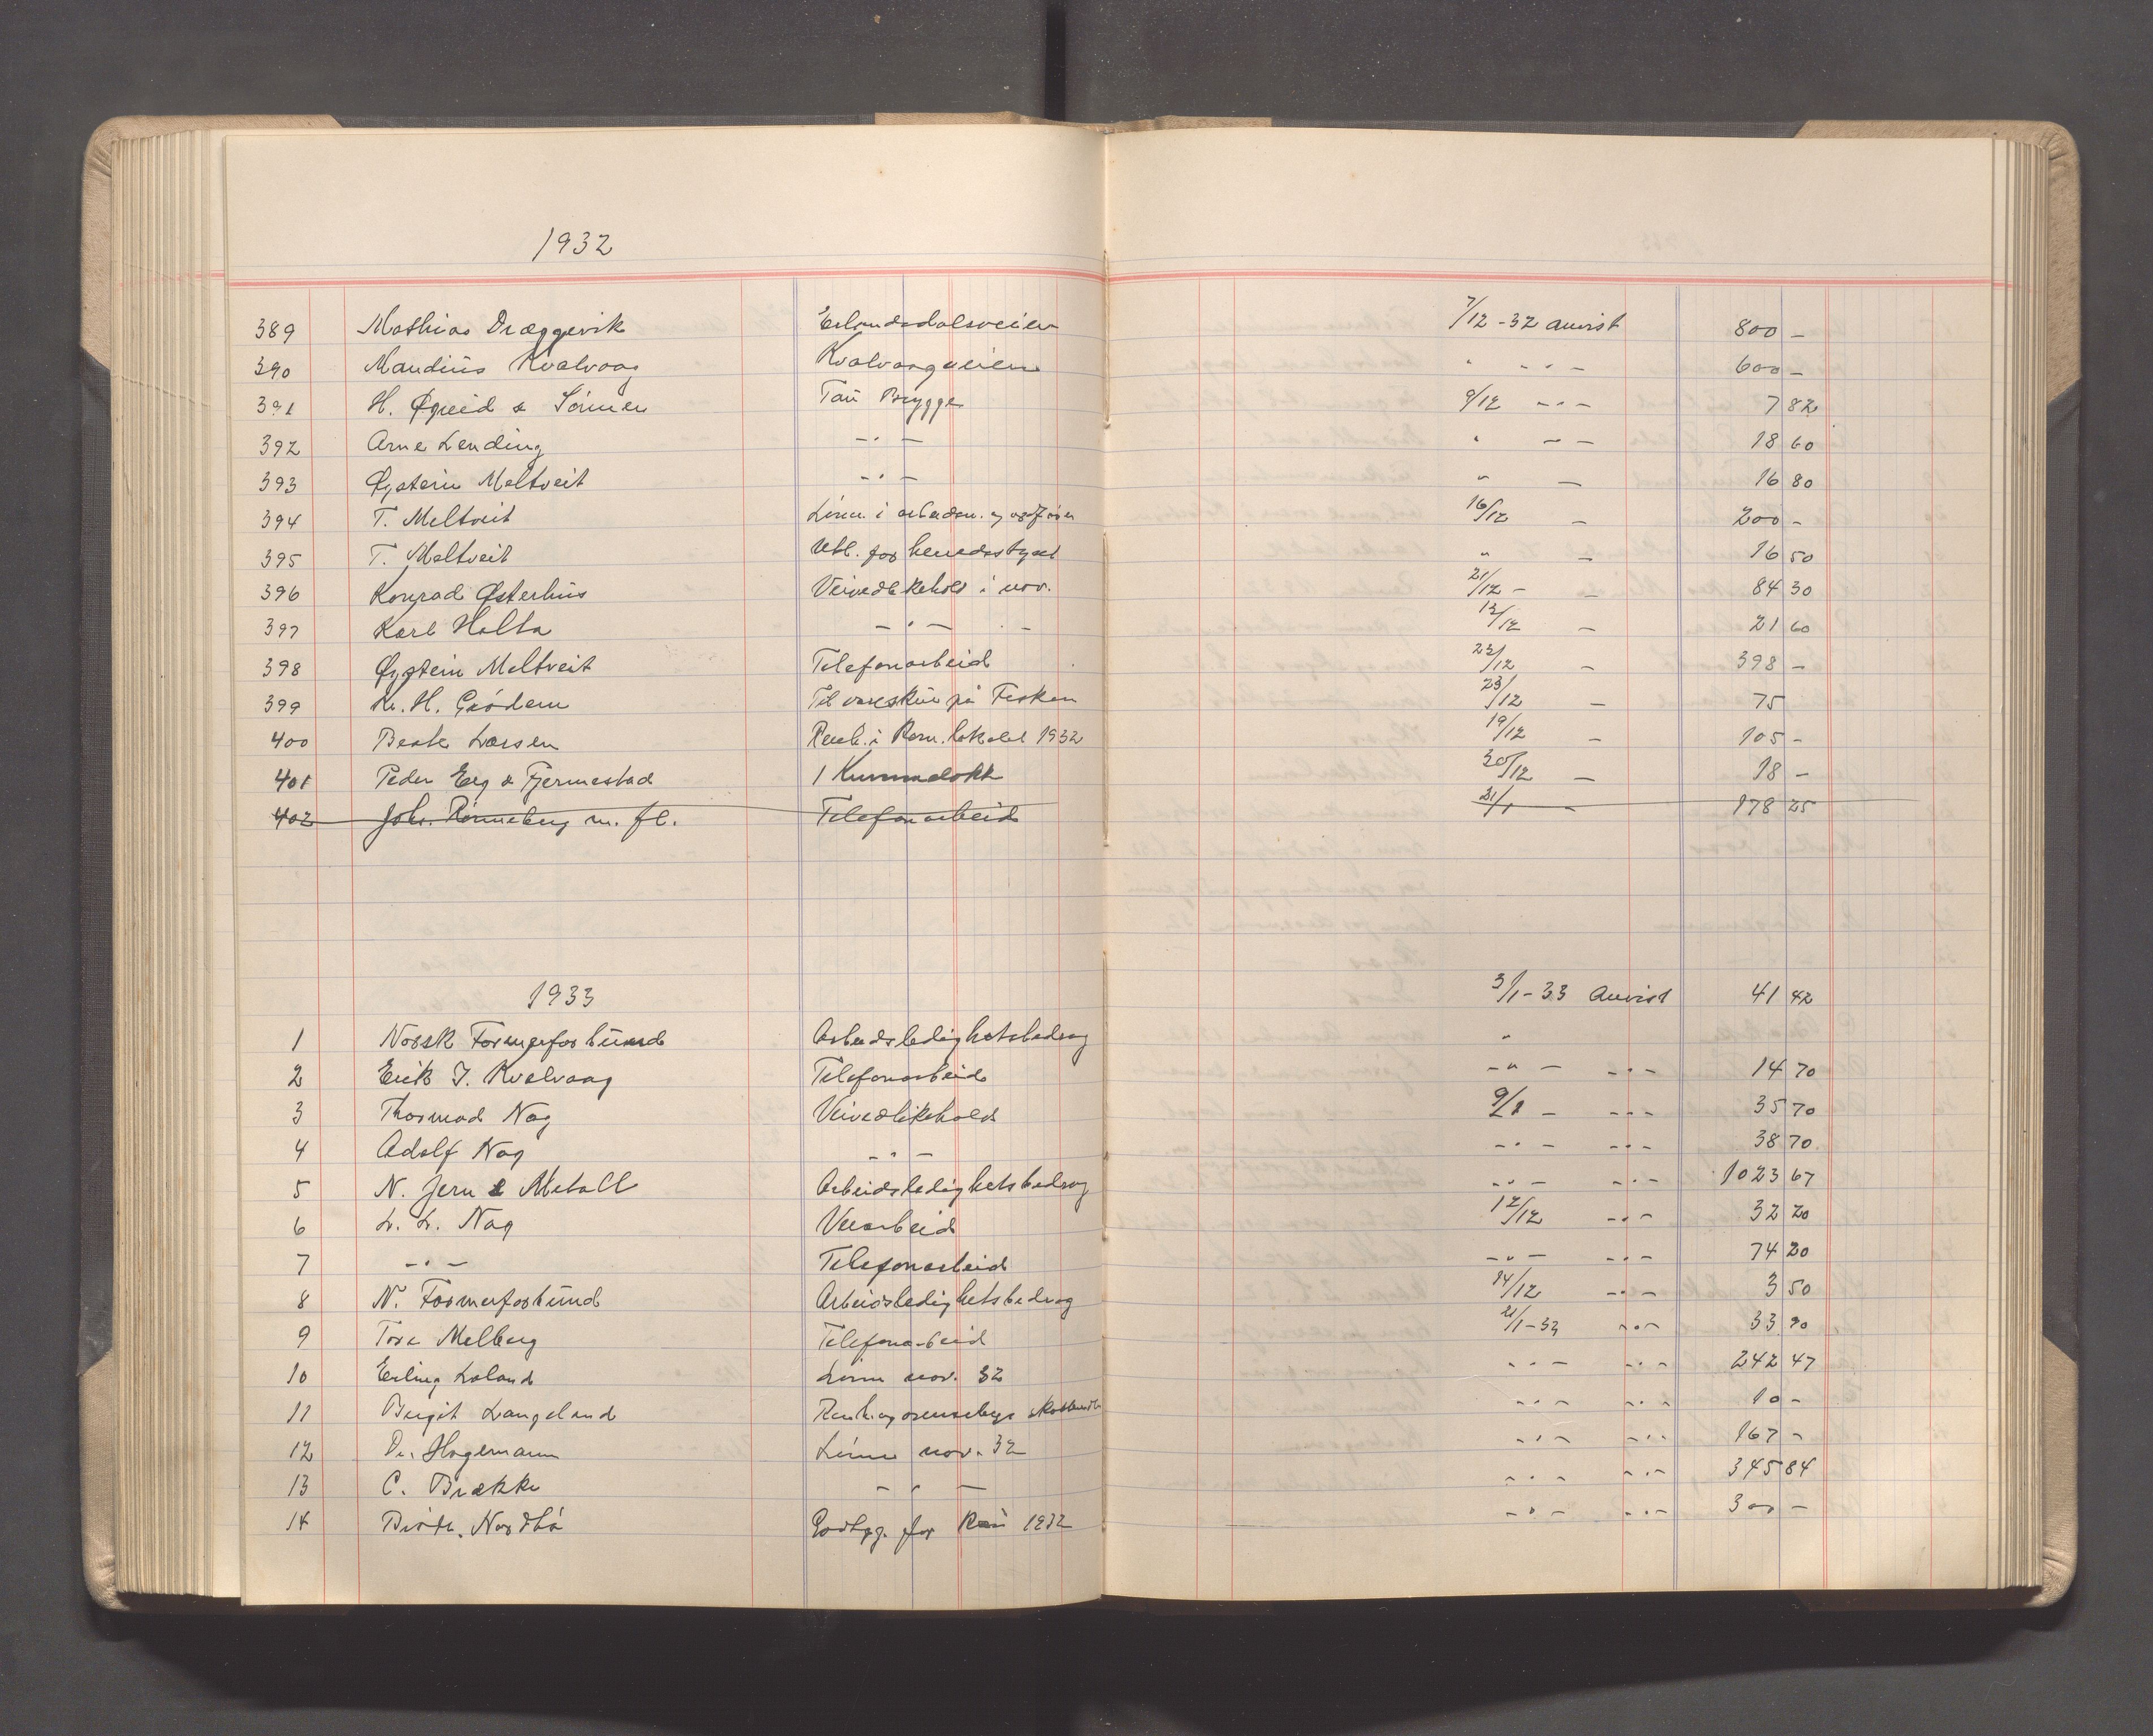 1932
389 Mathias Dræggevik Erlandsdalsveien 7/12-32 anvist 800 –
390 Maudius Kvalvaag Kvalvaagveien " – " – 600 –
391 H. Øgreid & Sönner Tau Brygge 9/12 – " – 7 82
392 Arne Lending – " – " – – 18 60
393 Øystein Meltveit – " – " – 16 80
394 T. Meltveit Lönn i arbeidsn. og 16/12 – 200 –
395 T. Meltveit Utl. for herredsstyret " – 16 50
396 Konrad Østerhus Veivedlikehold i nov. 21/12 – – 84 30
397 Karl Holta – " – " – 13/12 – 21 60
398 Øystein Meltveit Telefonarbeid 23/12 – 398 –
399 Kr. H. Grödem Til vareskur på Fisken 23/12 – 75
400 Beate Larsen Renh. i Kom. lokalet 1932 19/12 – 105 –
401 Peder Erg & Fjermestad 1 Kummelokk 30/12 – 18 –
402 Johs. Rönneberg m. fl. Telefonarbeid 31/1 – 178 25
1933 3/1-33 Anvist 41 42
1 Norsk Formerforbund Arbeidsledighetsbedrag "
2 Erik J. Kvalvaag Telefonarbeid – " – – " – 14 70
3 Thormod Nag Veivedlikehold 9/1 – – " – 35 70
4 Adolf Nag – " – – " – – " – 38 70
5 N. Jern & Metall Arbeidsledighetsbedrag – " – – " – 1023 67
6 L. L. Nag Veiarbeid 12/12 – " – 32 20
7 – " – Telefonarbeid – " – – " – 74 20
8 N. Formerforbund Arbeidsledighetsbedrag 14/12 – " – 3 50
9 Tore Melberg Telefonarbeid 21/1-33 – " – 33 90
10 Erling Loland Lönn nov. 32 – " – – " – 242 47
11 Birgit Langeland – " – – " – 10 –
12 Dr. Hagemann Lönn nov. 32 – " – – " – 167 –
13 C. Brække – " – – " – – " – 345 84
14 Birte Nordbö Godtgj. for 1932 – " – – " – 300 –